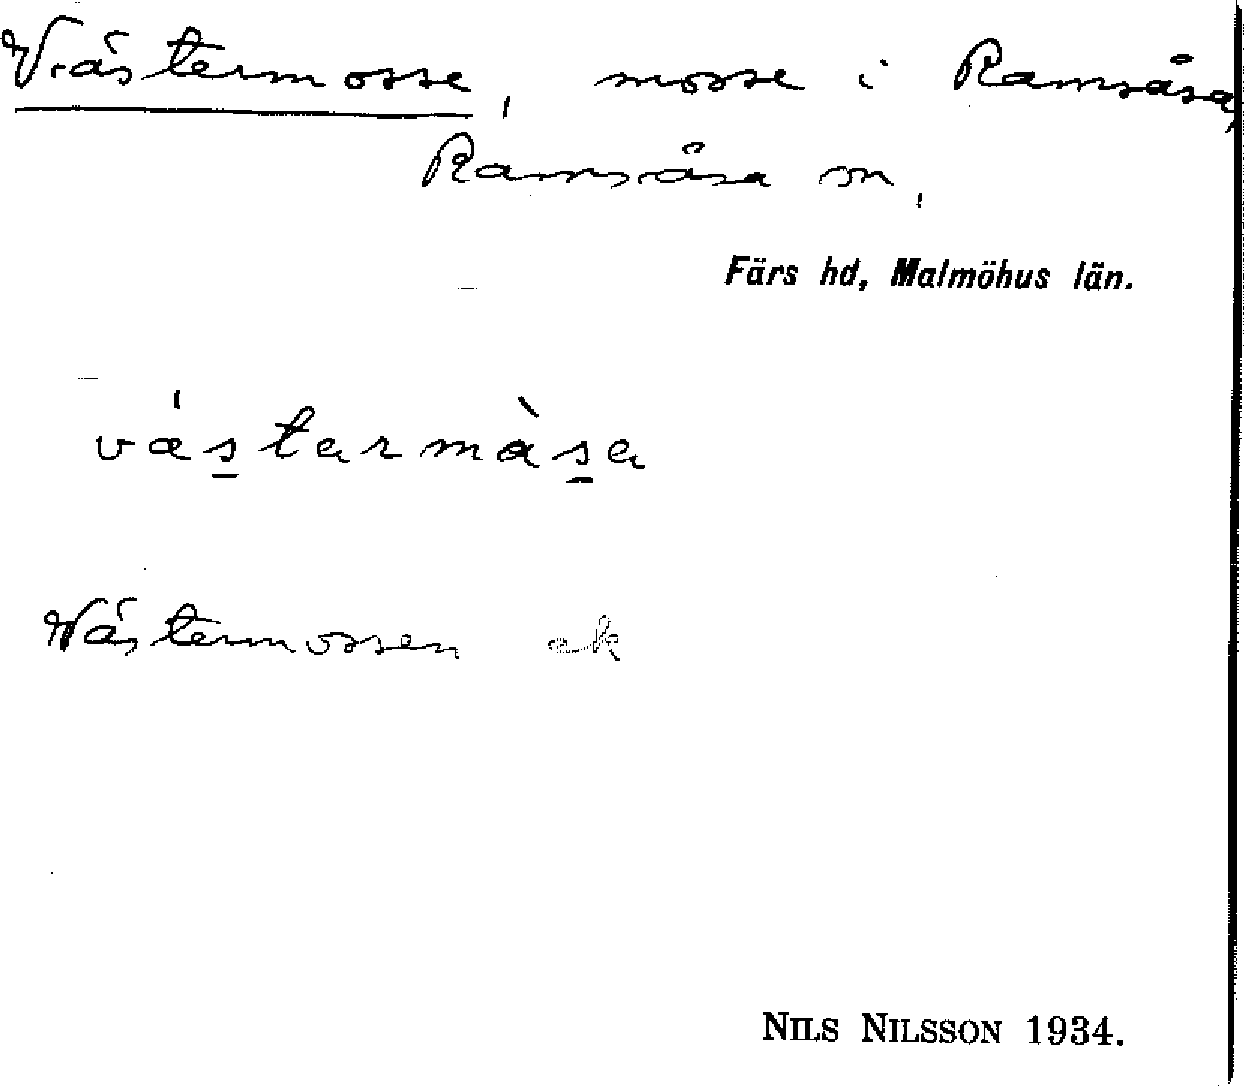 Västermosse, mosse i Ramsåsa,
Ramsåsa sn,
Färs hd, Malmöhus län.
væ̍s̱tarmàs̱a
Västermossen ek
NILS NILSSON 1934.